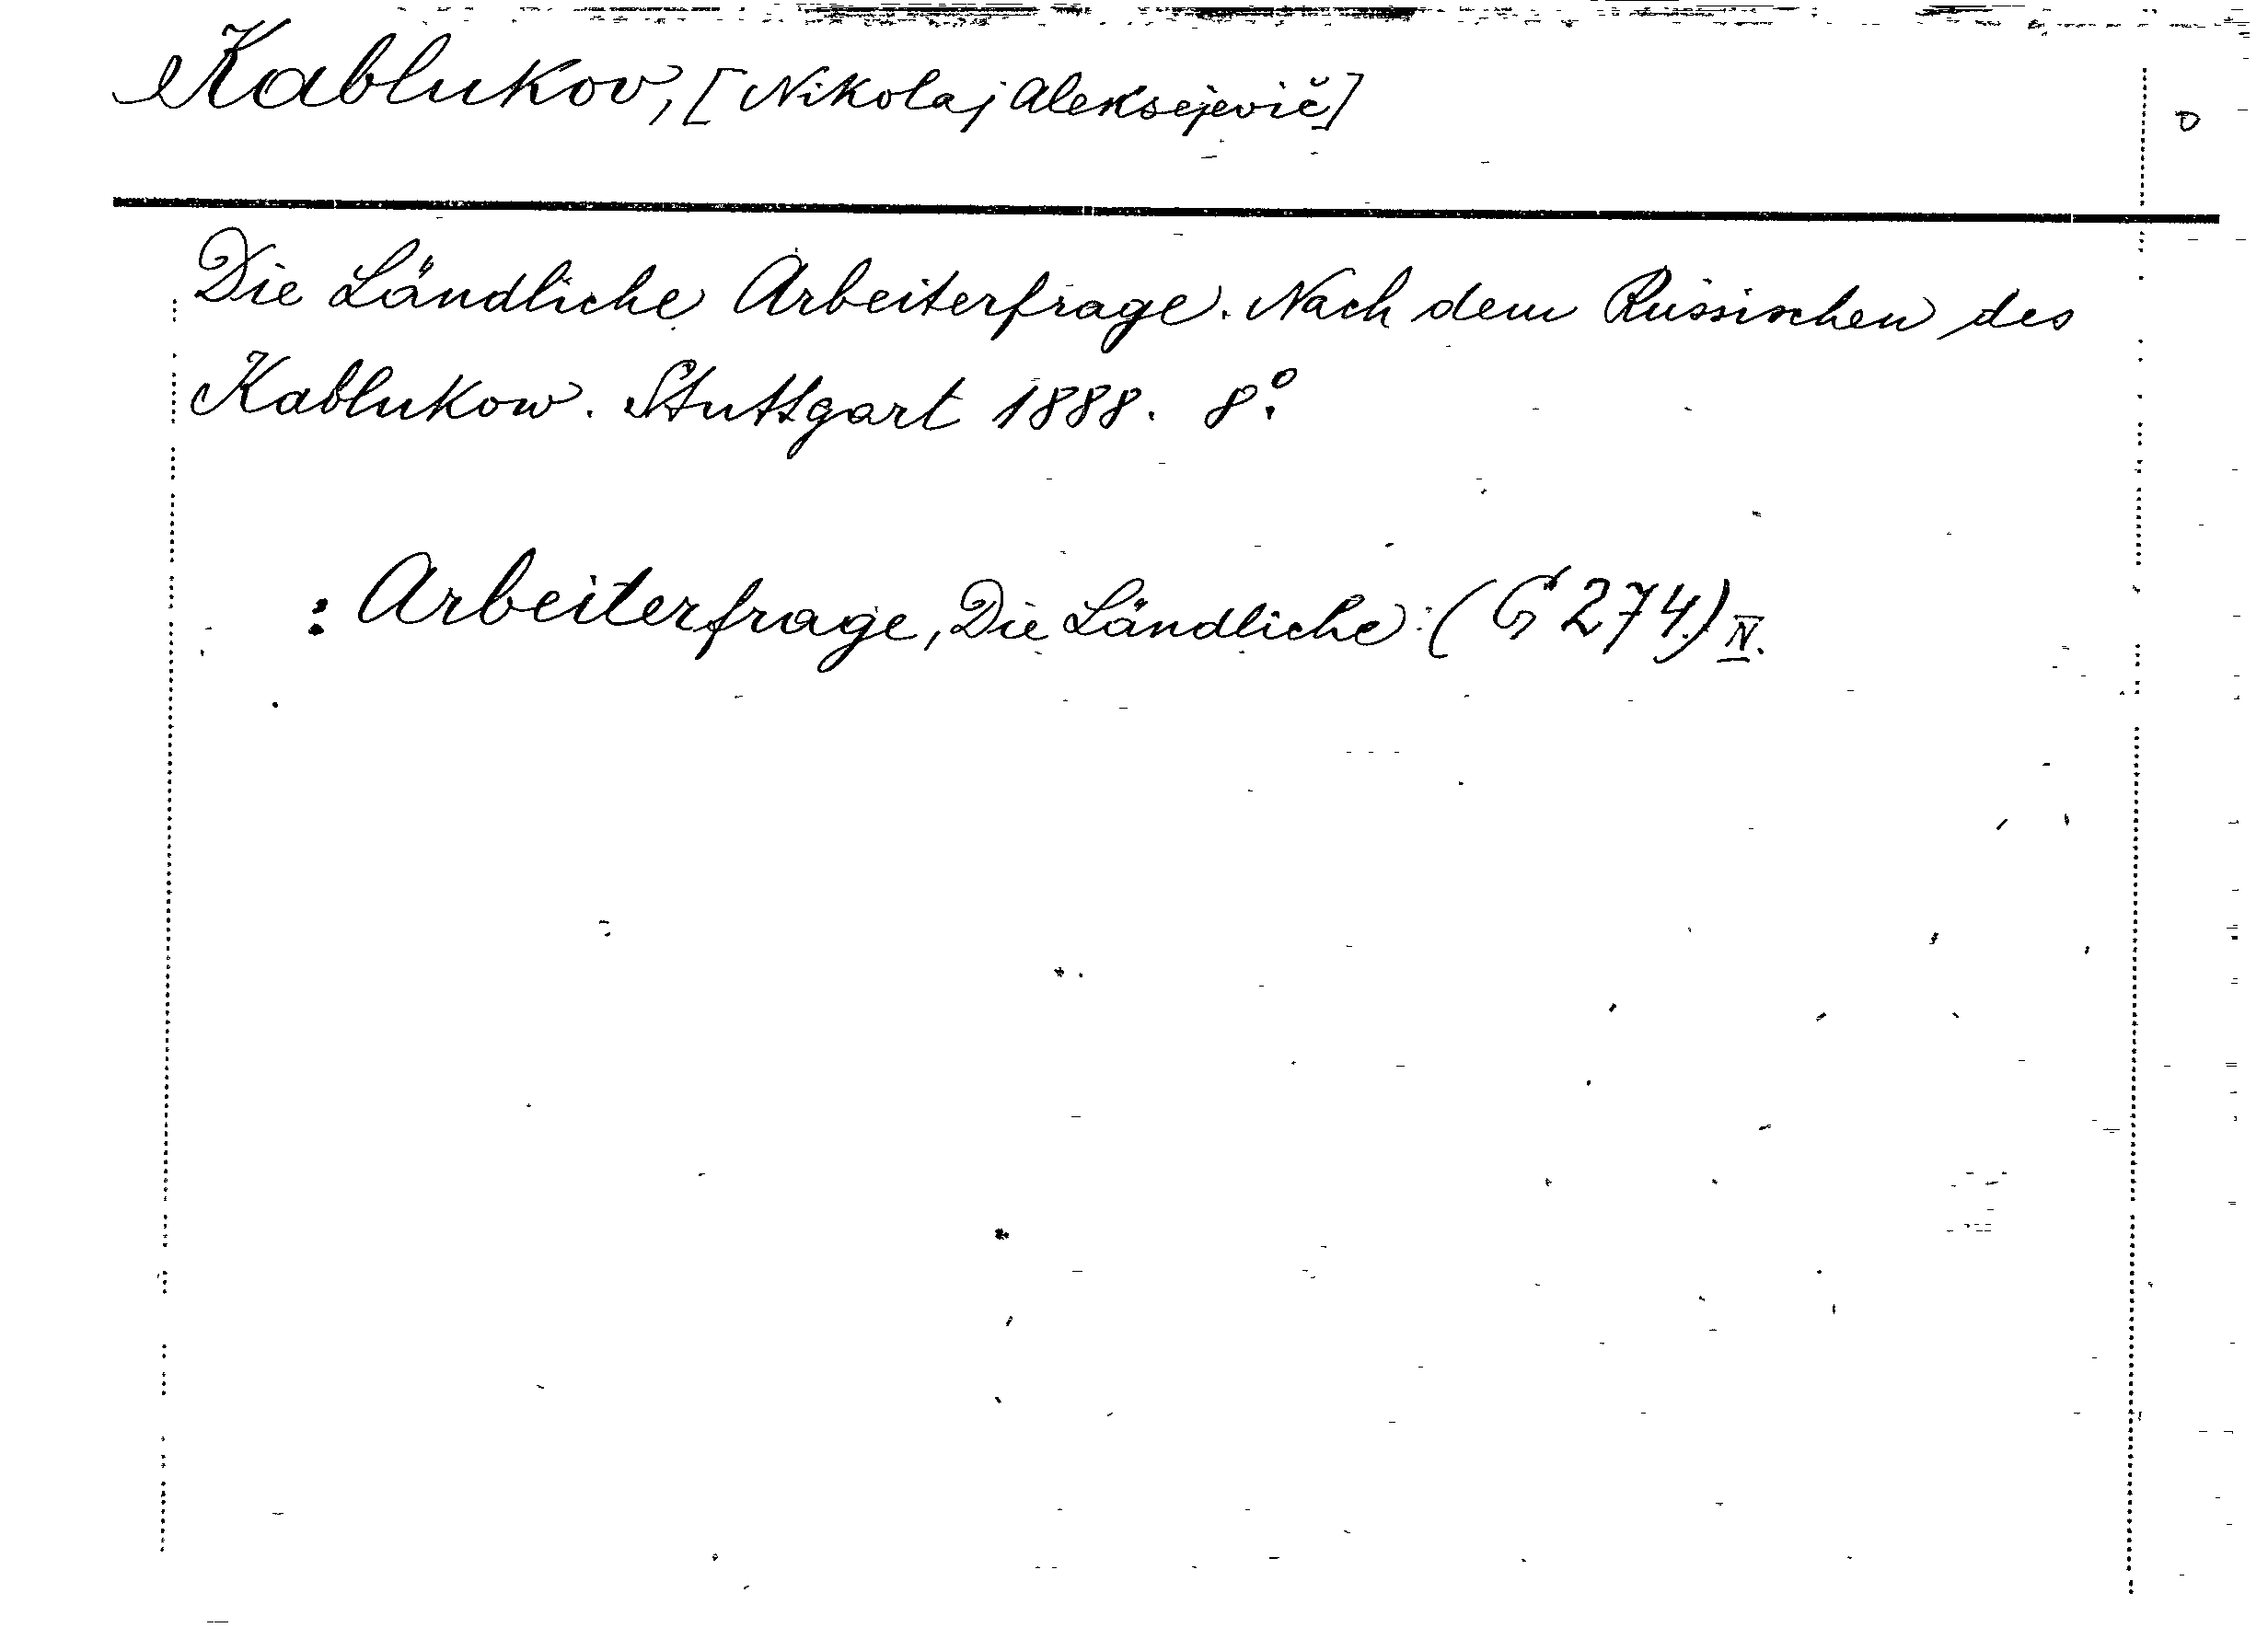 Kablukov, [Nikolaj Aleksejevič]
Die Ländliche Arbeiterfrage. Nach dem Russischen des
Kablukow. Stuttgart 1888. 8°.
: Arbeiterfrage, Die Ländliche: (G 274.) IV.